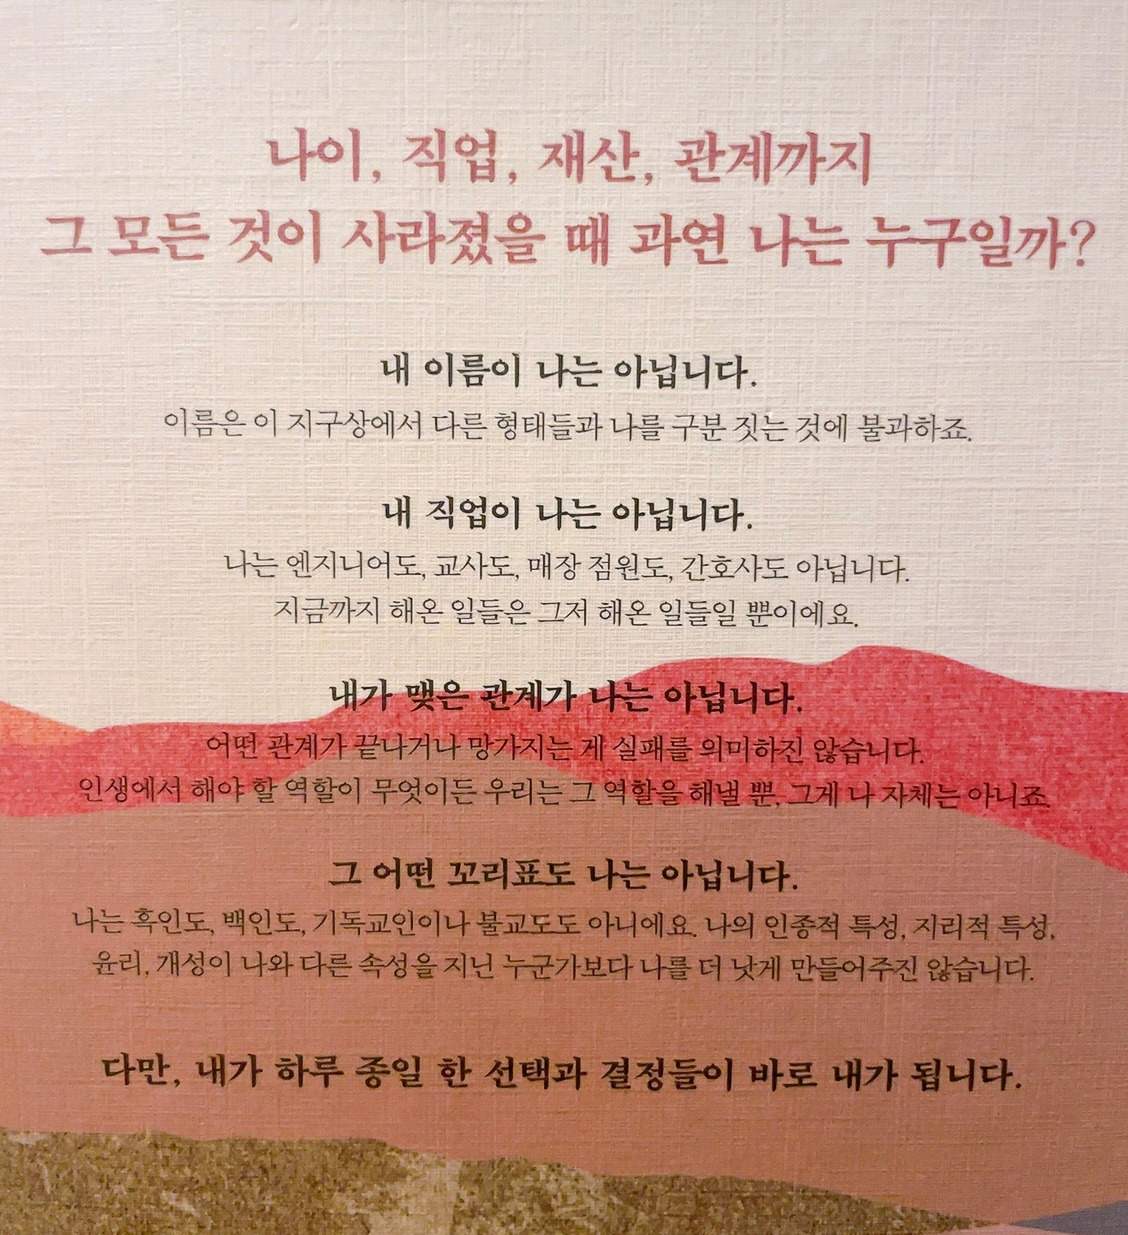 나이, 직업, 재산, 관계까지
그 모든 것이 사라졌을 때 과연 나는 누구일까?
내 이름이 나는 아닙니다.
이름은 이 지구상에서 다른 형태들과 나를 구분 짓는 것에 불과하죠.
내 직업이 나는 아닙니다.
나는 엔지니어도, 교사도, 매장 점원도, 간호사도 아닙니다.
지금까지 해온 일들은 그저 해온 일들일 뿐이에요.
내가 맺은 관계가 나는 아닙니다.
어떤 관계가 끝나거나 망가지는 게 실패를 의미하진 않습니다.
인생에서 해야 할 역할이 무엇이든 우리는 그 역할을 해낼 뿐, 그게 나 자체는 아니죠.
그 어떤 꼬리표도 나는 아닙니다.
나는 흑인도, 백인도, 기독교인이나 불교도도 아니에요. 나의 인종적 특성, 지리적 특성,
윤리, 개성이 나와 다른 속성을 지닌 누군가보다 나를 더 낫게 만들어주진 않습니다.
다만, 내가 하루 종일 한 선택과 결정들이 바로 내가 됩니다.